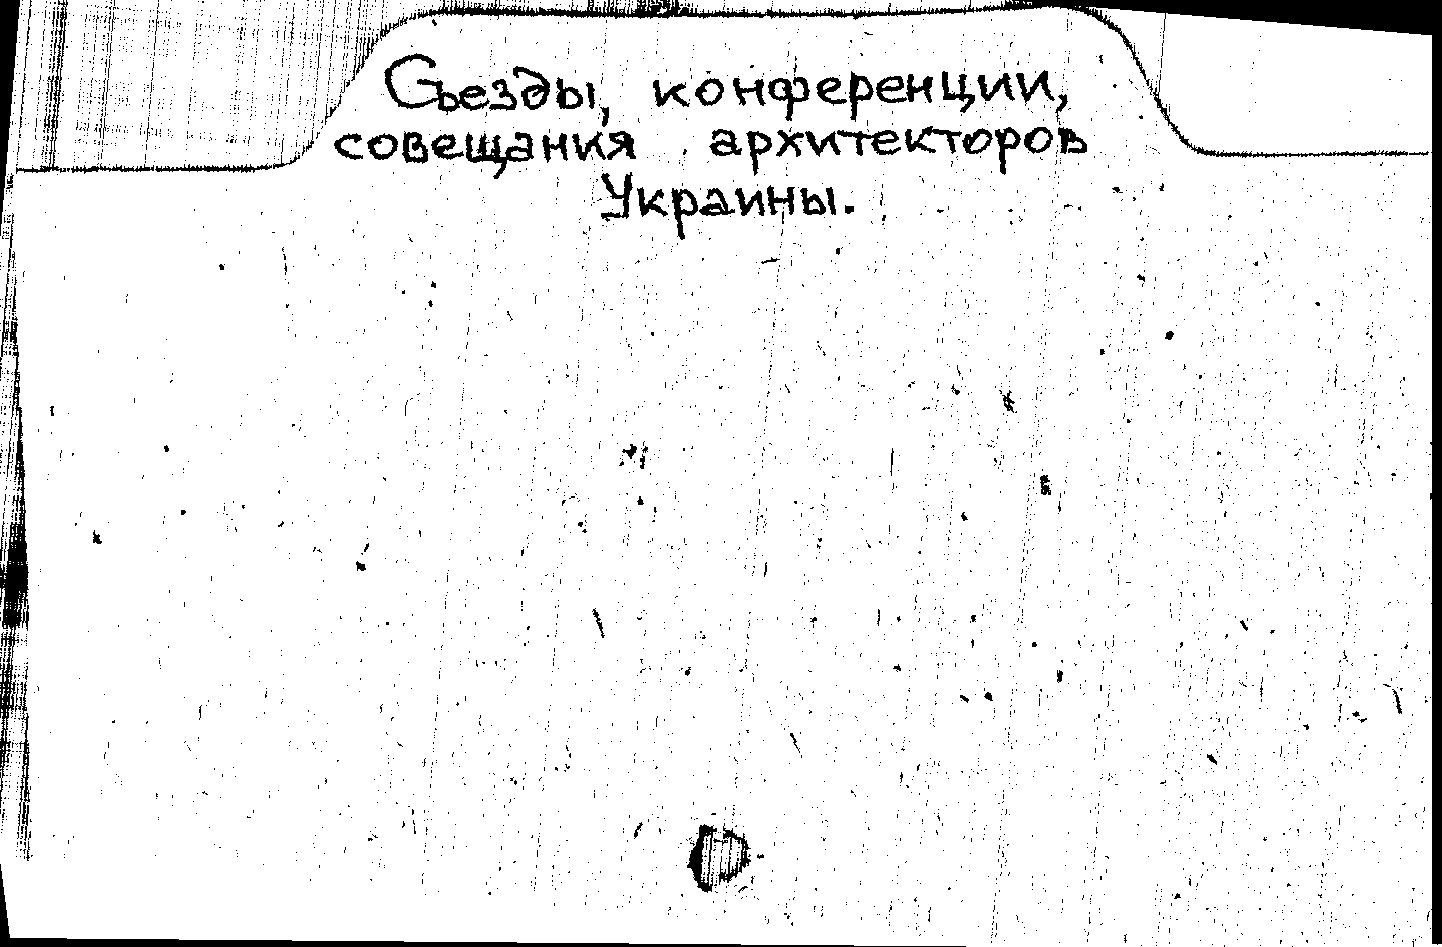 Съезды, конференции,
совещания архитекторов
Украины.